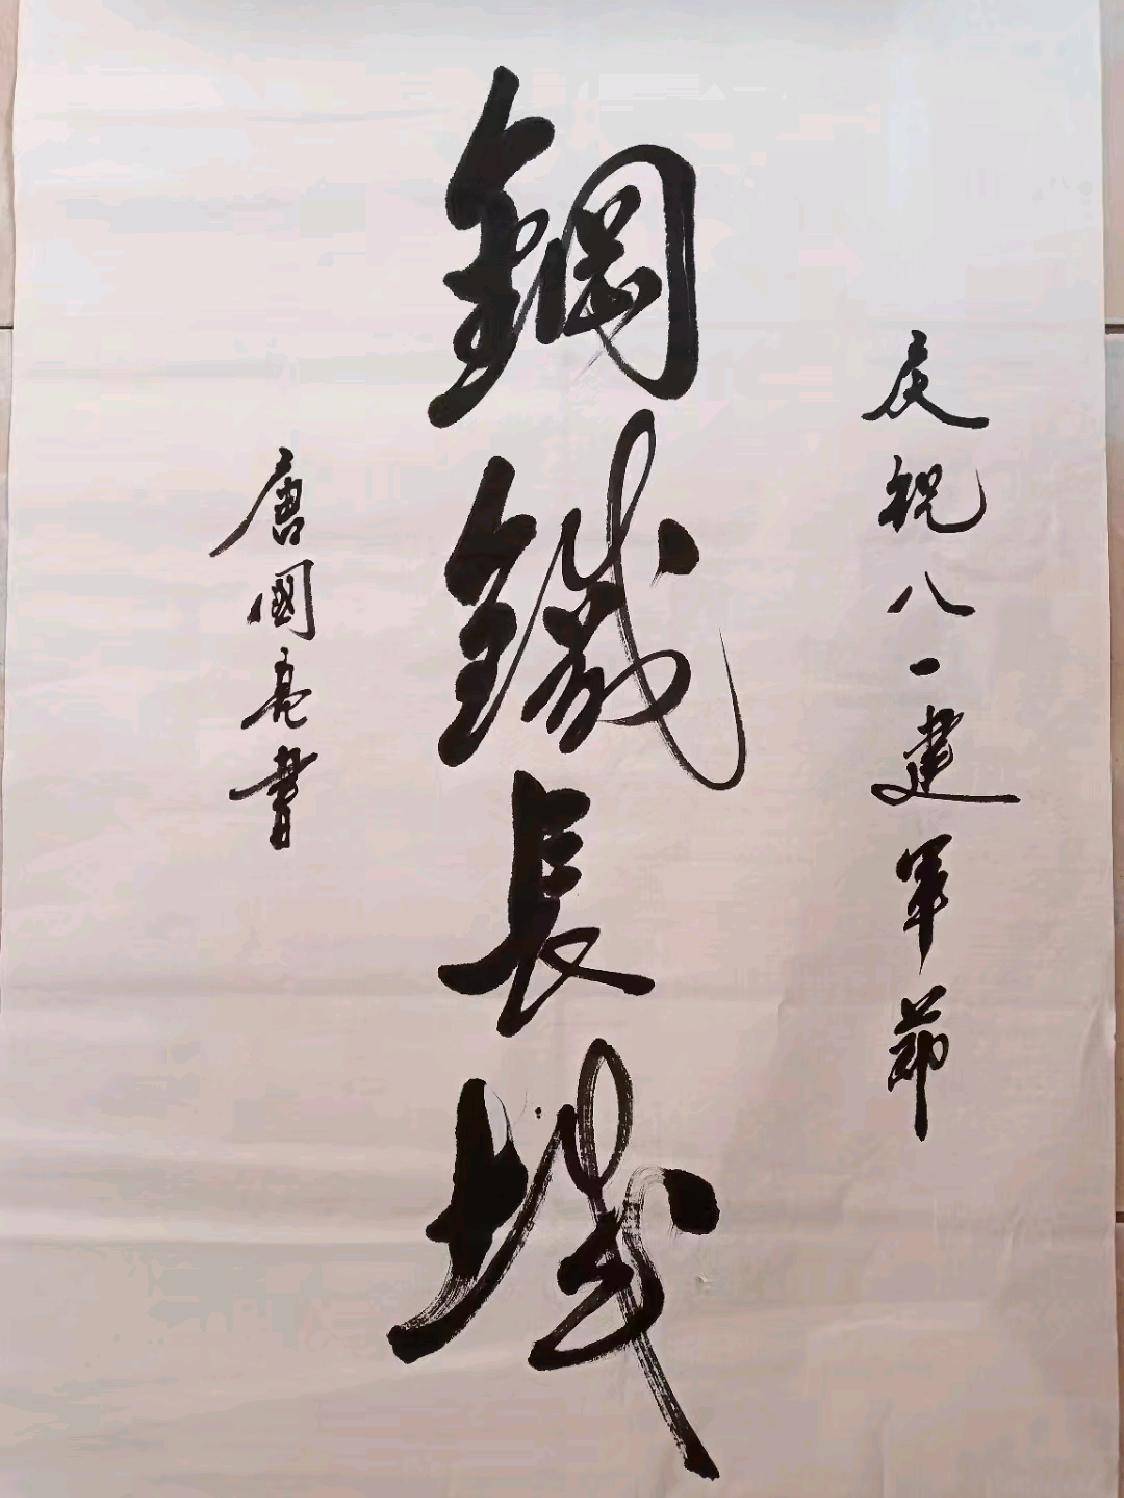 庆祝八一建军节
鋼鐵長城
唐國亮書